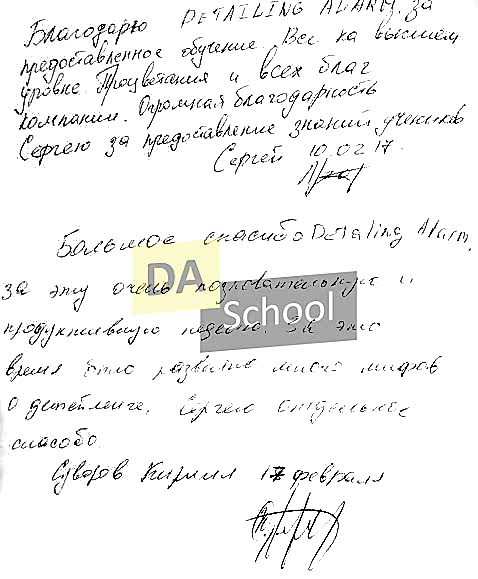 Благодарю DETAILING ALARM за
предоставленное обучение. Все на высшем
уровне. Процветания и всех благ
компании. Огромная благодарность
Сергею за предоставление знаний учеников
Сергей 10.02.17.
Большое спасибо Detaling Alarm,
за эту очень познавательную и
DA
School
продуктивную неделю. За это
время было развеяно много мифов
о детейлинге. Сергею отдельное
спасибо.
Суворов Кирилл 17 февраля